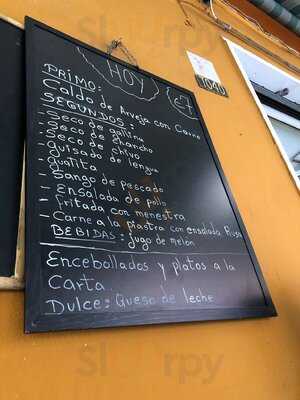 HOY
€7
1040
PRIMO:
Caldo de Arveja con Carne
SEGUNDOS:
- Seco de gallina
- Seco de chancho
- Seco de chivo
- Guisado de lengua
- Guatita
- Sango de pescado
- Ensalada de pollo
- Fritada con menestra
- Carne a la piastra con ensalada Rusa
BEBIDAS: jugo de melon
Encebollados y platos a la
Carta
Dulce: Queso de leche
Sluurpy
Sluurpy